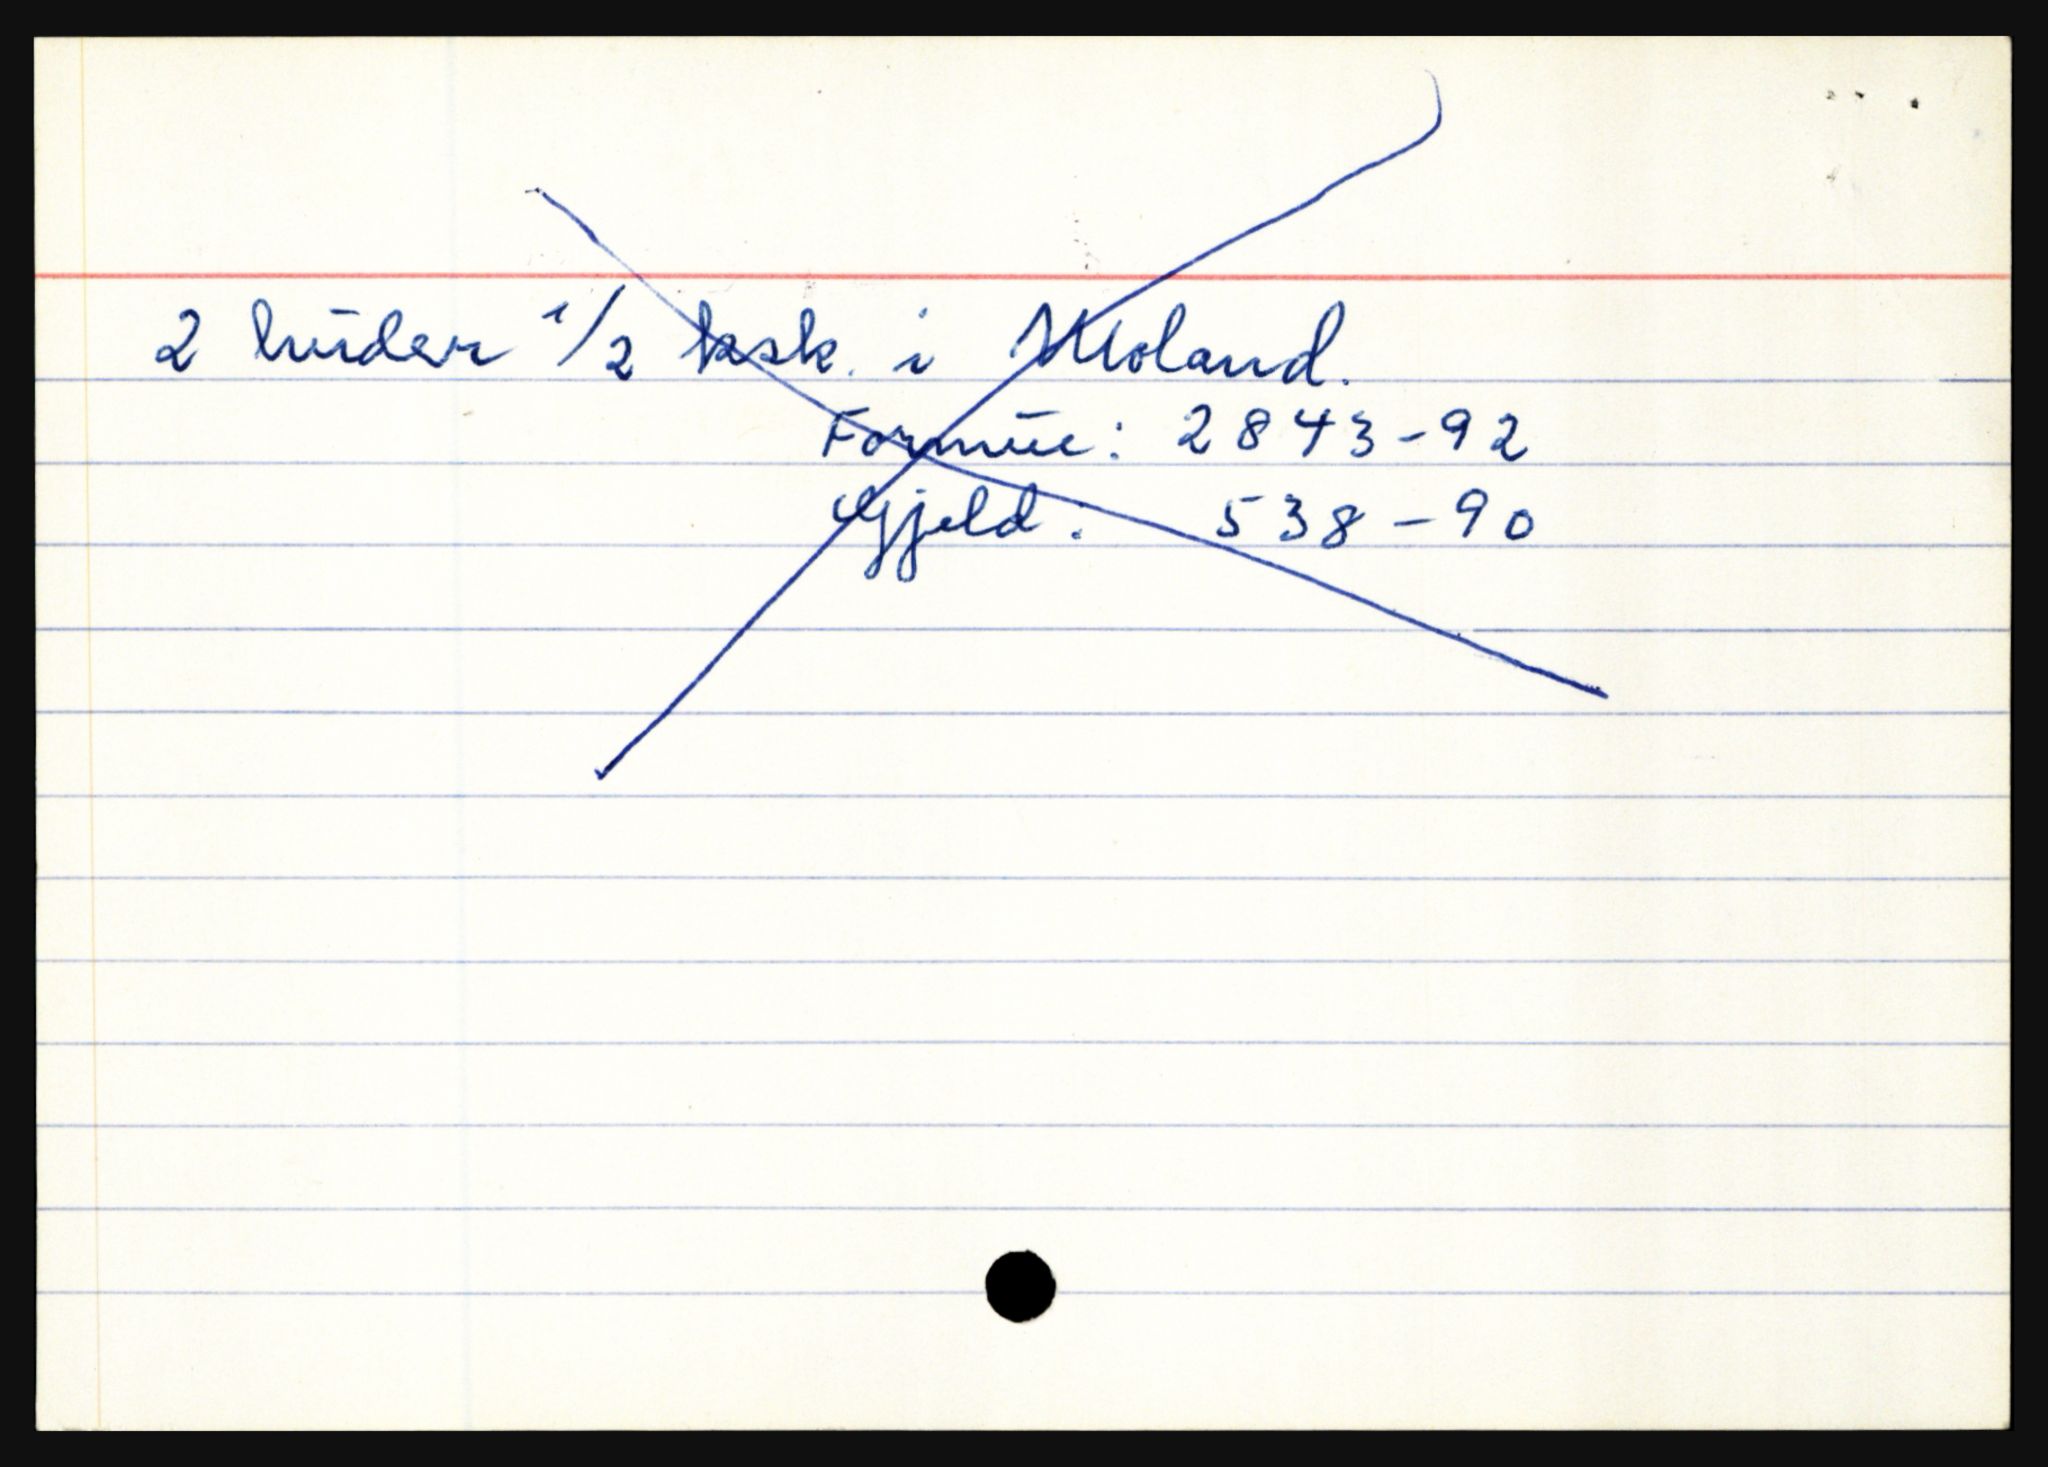 2 huder 1/2 ksk. i Moland.
Formue: 2843-92
Gjeld: 538-90